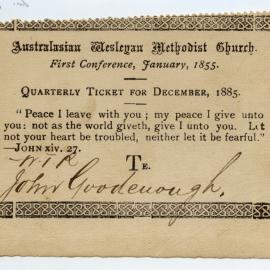 Australasian Wesleyan Methodist Church.
First Conference, January, 1855.
QUARTERLY TICKET FOR DECEMBER, 1885.
"Peace I leave with you; my peace I give unto
you: not as the world giveth, give I unto you. Let
not your heart be troubled, neither let it be fearful."
—JOHN xiv. 27.
TE.
John Goodenough.